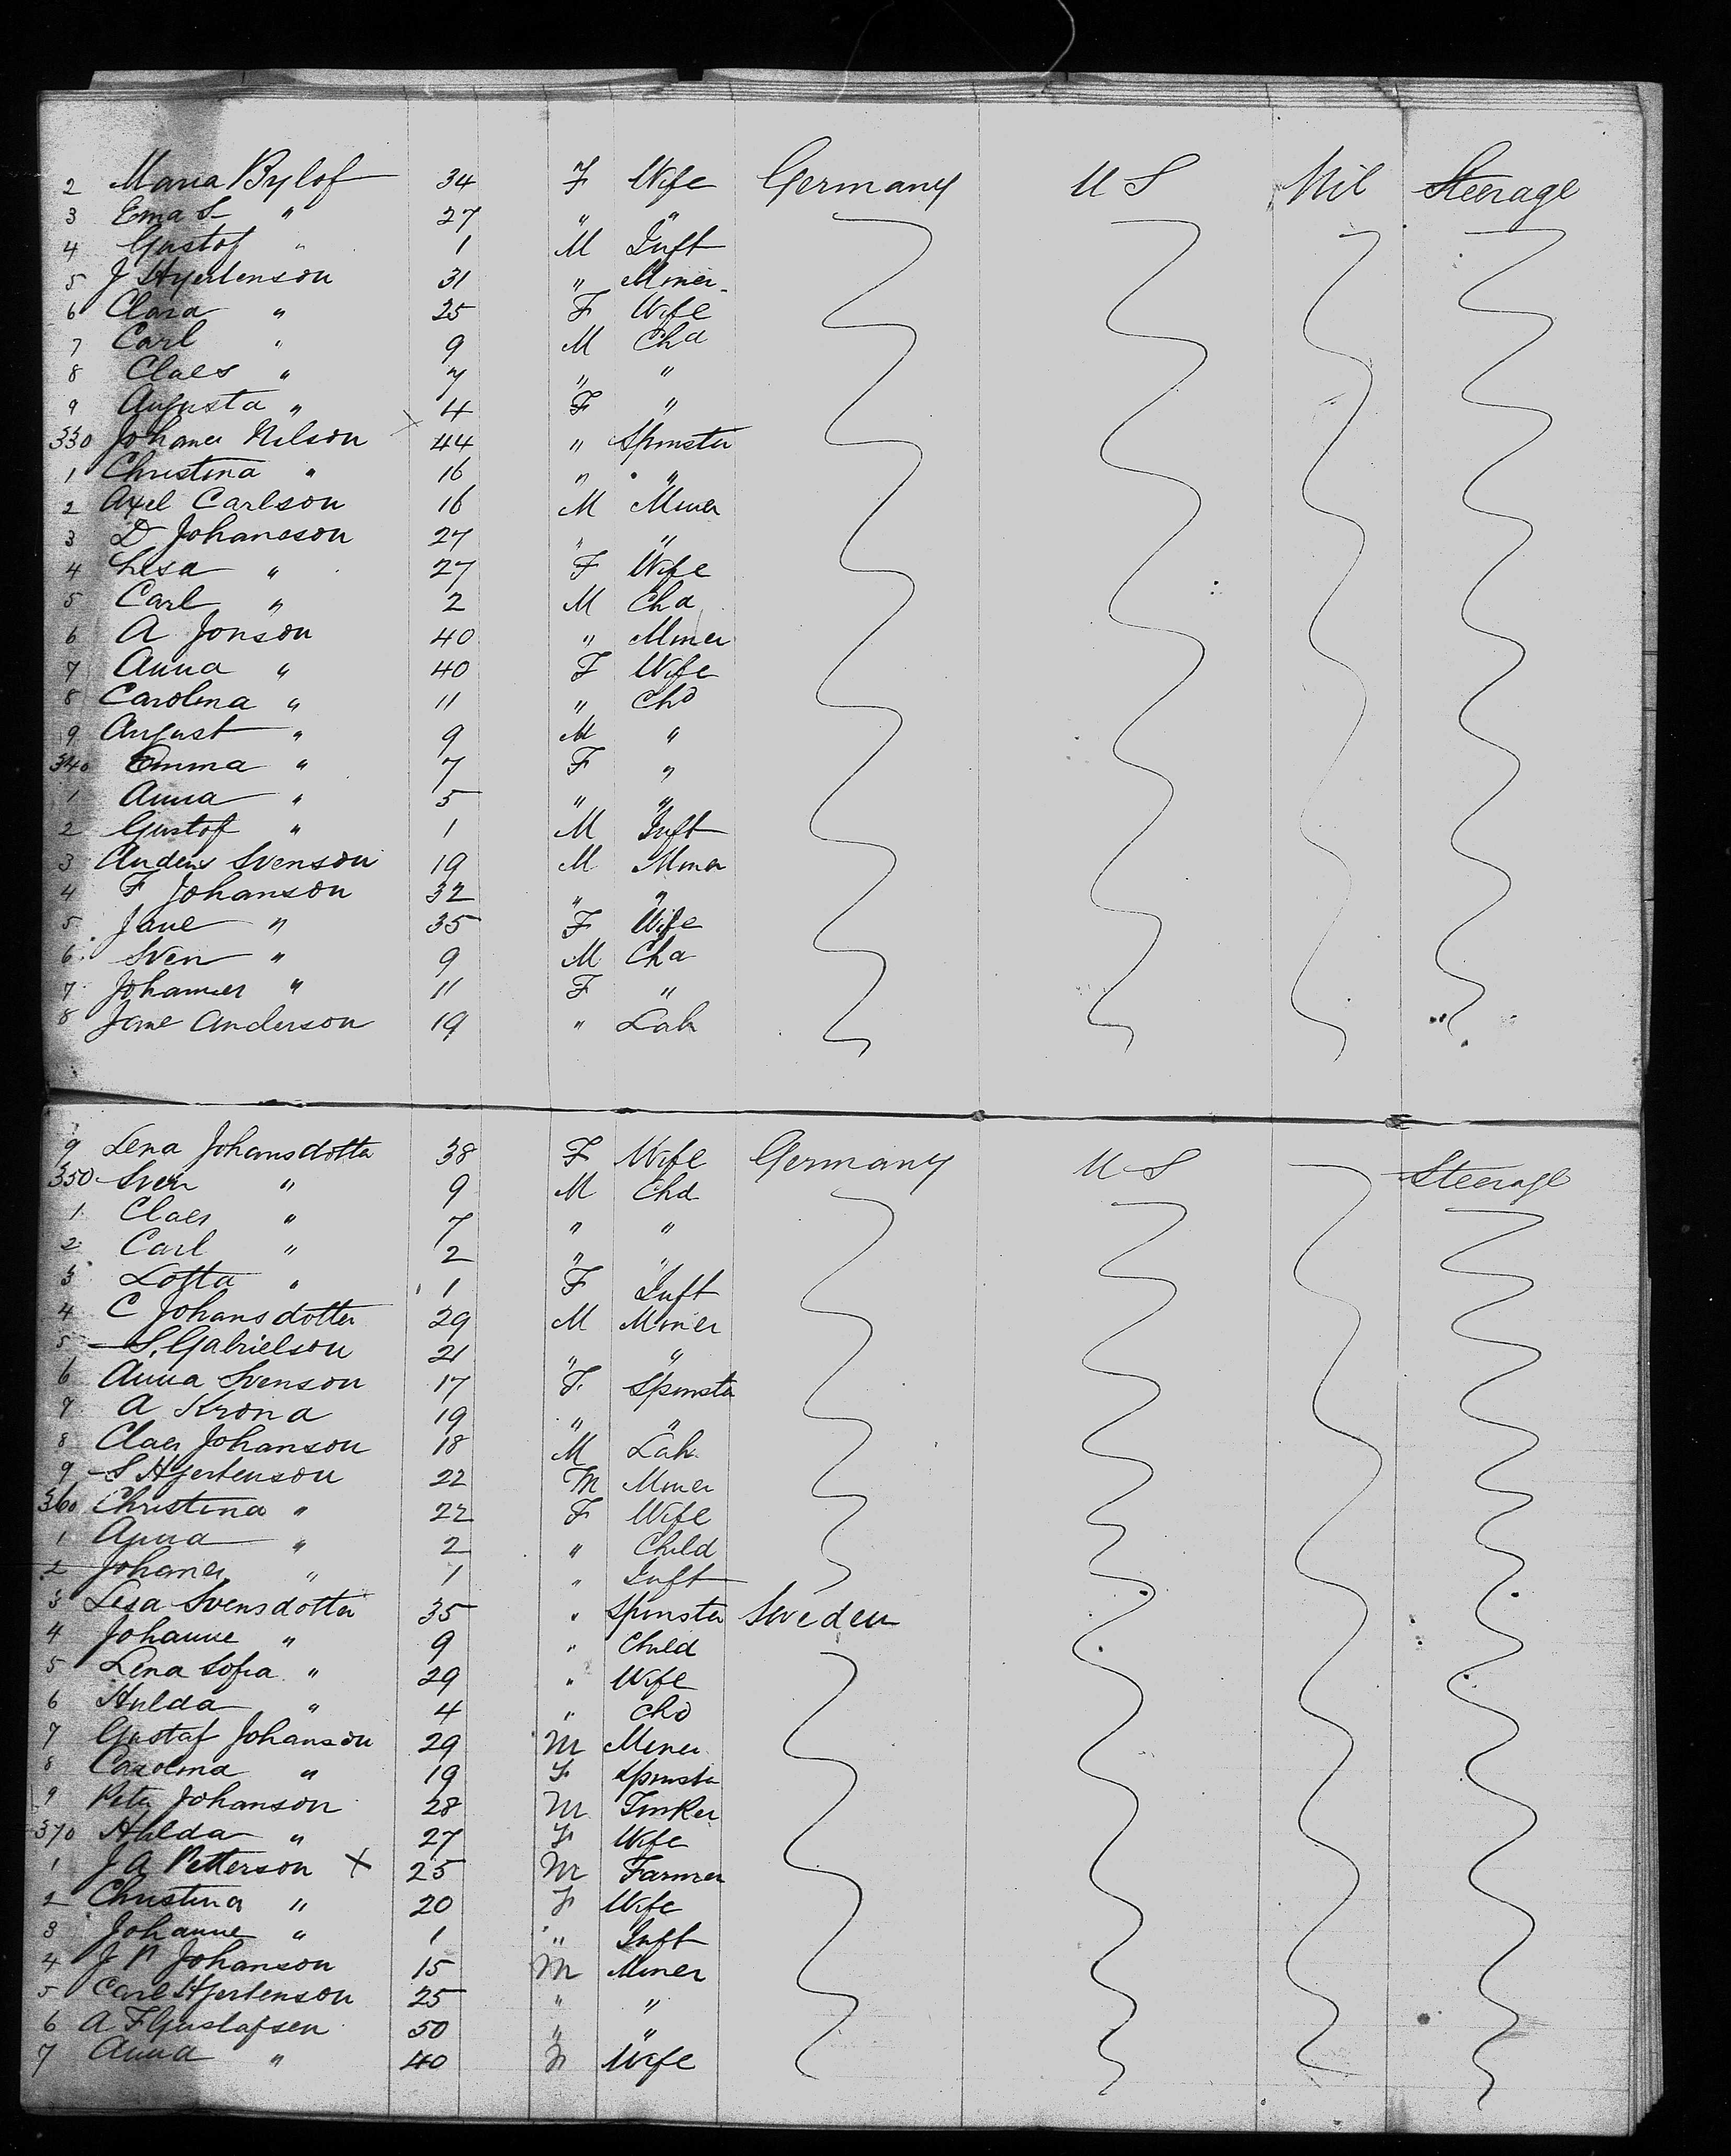 2 Maria Bylof 34 F Wife Germany U S Nil Steerage
3 Ema S " 27 " "
4 Gustof " 1 M Inft
5 J Hyertenson 31 " Miner
6 Clara " 25 F Wife
7 Carl " 9 M Chd
8 Claes " 7 " "
9 Augusta " 4 F "
330 Johanes Nilson × 44 " Spinster
1 Christina " 16 " "
2 Axel Carlson 16 M Miner
3 D Johaneson 27 " "
4 Lisa " 27 F Wife
5 Carl " 2 M Chd
6 A Jonson 40 " Miner
7 Anna " 40 F Wife
8 Carolina " 11 " Chd
9 August " 9 M "
340 Emma " 7 F "
1 Anna " 5 " "
2 Gustof " 1 M Inft
3 Anders Svenson 19 M Miner
4 F Johanson 32 " "
5 Jane " 35 F Wife
6 Sven " 9 M Chd
7 Johannes " 11 F "
8 Jane Anderson 19 " Lab
9 Lena Johansdotter 38 F Wife Germany U S Steerage
350 Sven " 9 M Chd
1 Claes " 7 " "
2 Carl " 2 " "
3 Lotta " 1 F Inft
4 C Johansdotter 29 M Miner
5 S. Gabrielson 21 " "
6 Anna Svenson 17 F Spinster
7 A Krona 19 " "
8 Claes Johanson 18 M Lab
9 S Hjertenson 22 M Miner
360 Christina " 22 F Wife
1 Anna " 2 " Child
2 Johanes " 1 " Inft
3 Lisa Svensdotter 35 " Spinster Sweden
4 Johanne " 9 " Child
5 Lena Sofia " 29 " Wife
6 Hulda " 4 " Chd
7 Gustaf Johanson 29 M Miner
8 Carolina " 19 F Spinster
9 Peter Johanson 28 M Tinker
370 Hulda " 27 F Wife
1 J A Petterson × 25 M Farmer
2 Christina " 20 F Wife
3 Johanne " 1 " Inft
4 J P Johanson 15 M Miner
5 Carl Hjertenson 25 " "
6 A F Gustafsen 50 " "
7 Anna " 40 F Wife